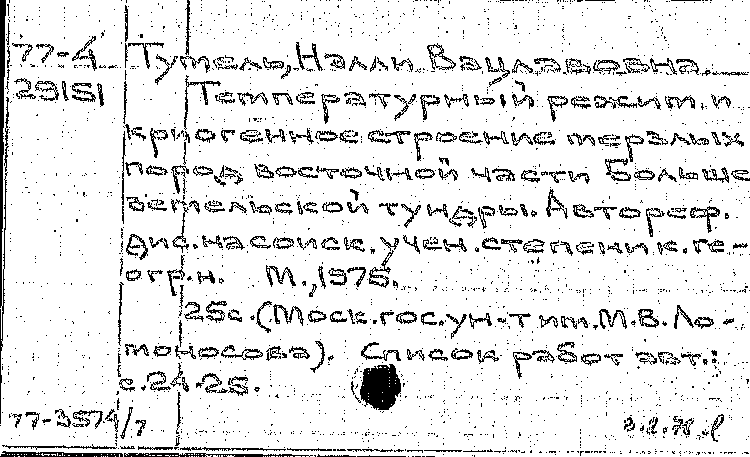 77-4 Тумель, Нэлли Вацлавовна.
29151 Температурный режим и
криогенное строение мерзлых
пород восточной части Больше
земельской тундры. Автореф.
дис. на соиск. учен. степени к. ге-
огр. н. М., 1975.
25с. (Моск. гос. ун-т им. М.В. Ло-
моносова). Список работ авт.:
с. 24-25.
77-3574/7